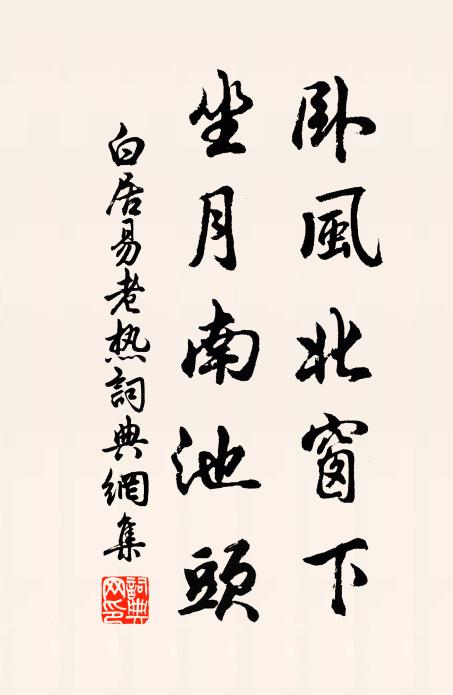 卧風北窗下
坐月南池頭
白居易老热詞典網集
詞典網印